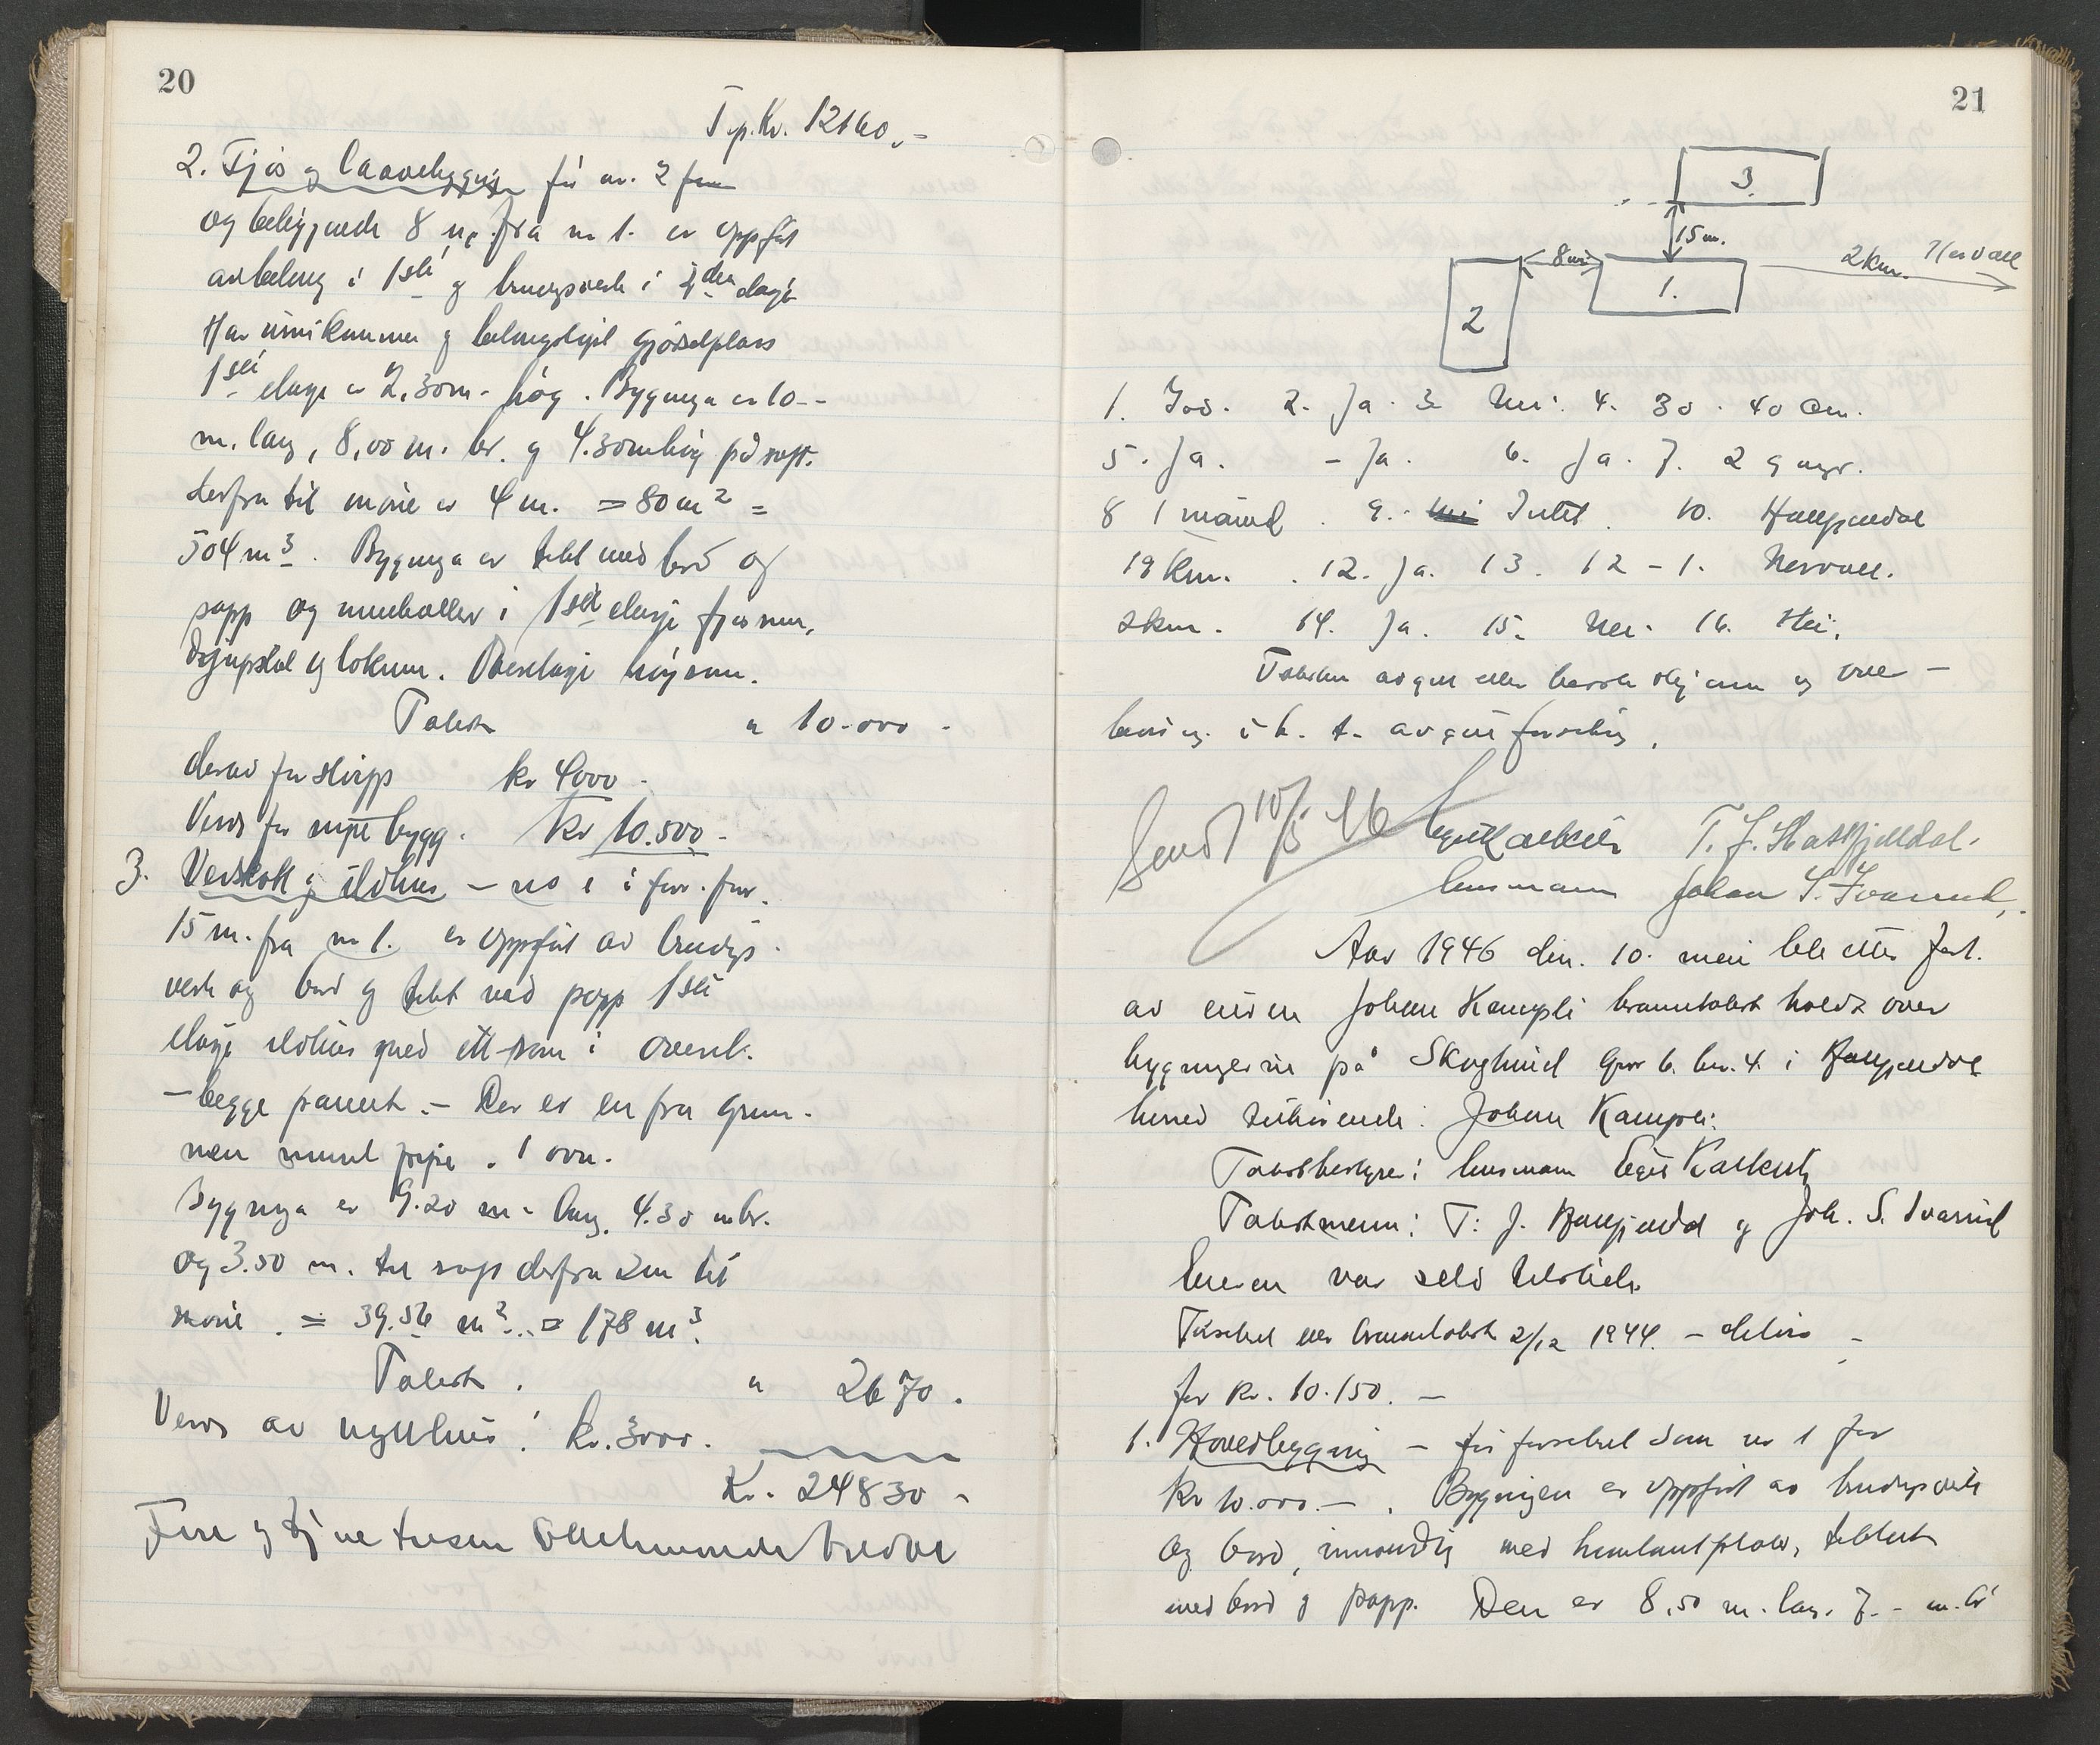 20
Tp. Kr. 12160.-
2. Fjøs og laavebygging før nr. 2 
og beliggende 8 m. fra nr 1. er oppført
av i 1ste og bindingsverk i 2den etage
Har urinkummer og gjødselplass
1ste etage er 2,30 m. høg. Bygninga er 10--
m. lang, 8,00 m. br. og 4.30 m høg på røft.
derfra til møne er 4 m. = 80 m2 =
504 m3. Bygninga er tekt med bord og
papp og inneholder i 1ste etasje fjøsrum,
og lokum. Overetage høyrum.
Takst " 10.000 -
derav for stripp kr 4000 -
Verdi for nytt bygg. Kr 10.500 -
3. Vedskott og ildhus - no 1 i forr. forr.
15 m. fra nr 1. er oppført av bindings-
verk og bord og tekt med papp 1ste
etage ildhus med ett rom i overet.
- begge panelt. - Der er en fra grun-
nen murt pipe. 1 ovn.
Bygninga er 9.20 m. lang, 4.30 m br.
og 3.50 m. til røft derfra 2 m til
møne. = 39.56 m2.. = 178 m3.
Takst. " 2670.
Verdi av nytt hus: kr. 3000.
Kr. 24830 -
Fire og tjue tusen ottehundrede tredve
21
3.
15 m.
8 m
2 km.
2
1.
1. Jod. 2. Ja. 3. Nei. 4. 30 - 40 cm.
5. Ja. - Ja. 6. Ja. 7. 2 ganger.
8 1 mand. 9. nei Intet. 10. Hattfjelldal
19 km. . 12. Ja. 13. 12 - 1.
2 km. 14. Ja. 15. Nei. 16. Nei.
Taksten avgitt efter beste skjønn og over-
bevisn. i h. t. avgitt forsikring.
Sendt 10/5 46 T. J. Hattfjelldal.
lensmann Johan S. Ivarrud.
Aar 1946 den 10. mai ble etter forl.
av eieren Johan Kampli branntakst holdt over
bygningerne på Skoglund gnr 6. bnr. 4. i Hattfjelldal
herred tilhørende: Johan Kampli.
Takstbestyrer: lensmann
Takstmenn: T. J. Hattfjelldal og Joh. S. Ivarrud
Eieren var selv tilstede
Forsikret ved branntakst 2/12 1944. - -
for kr. 10.150. -
1. Hovedbygning - før forsikret som nr 1 for
kr 10.000.-. Bygningen er oppført av bindingsverk
og bord, innvendig med plater, tekket
med bord og papp. Den er 8,50 m. lang. 7.- m. br